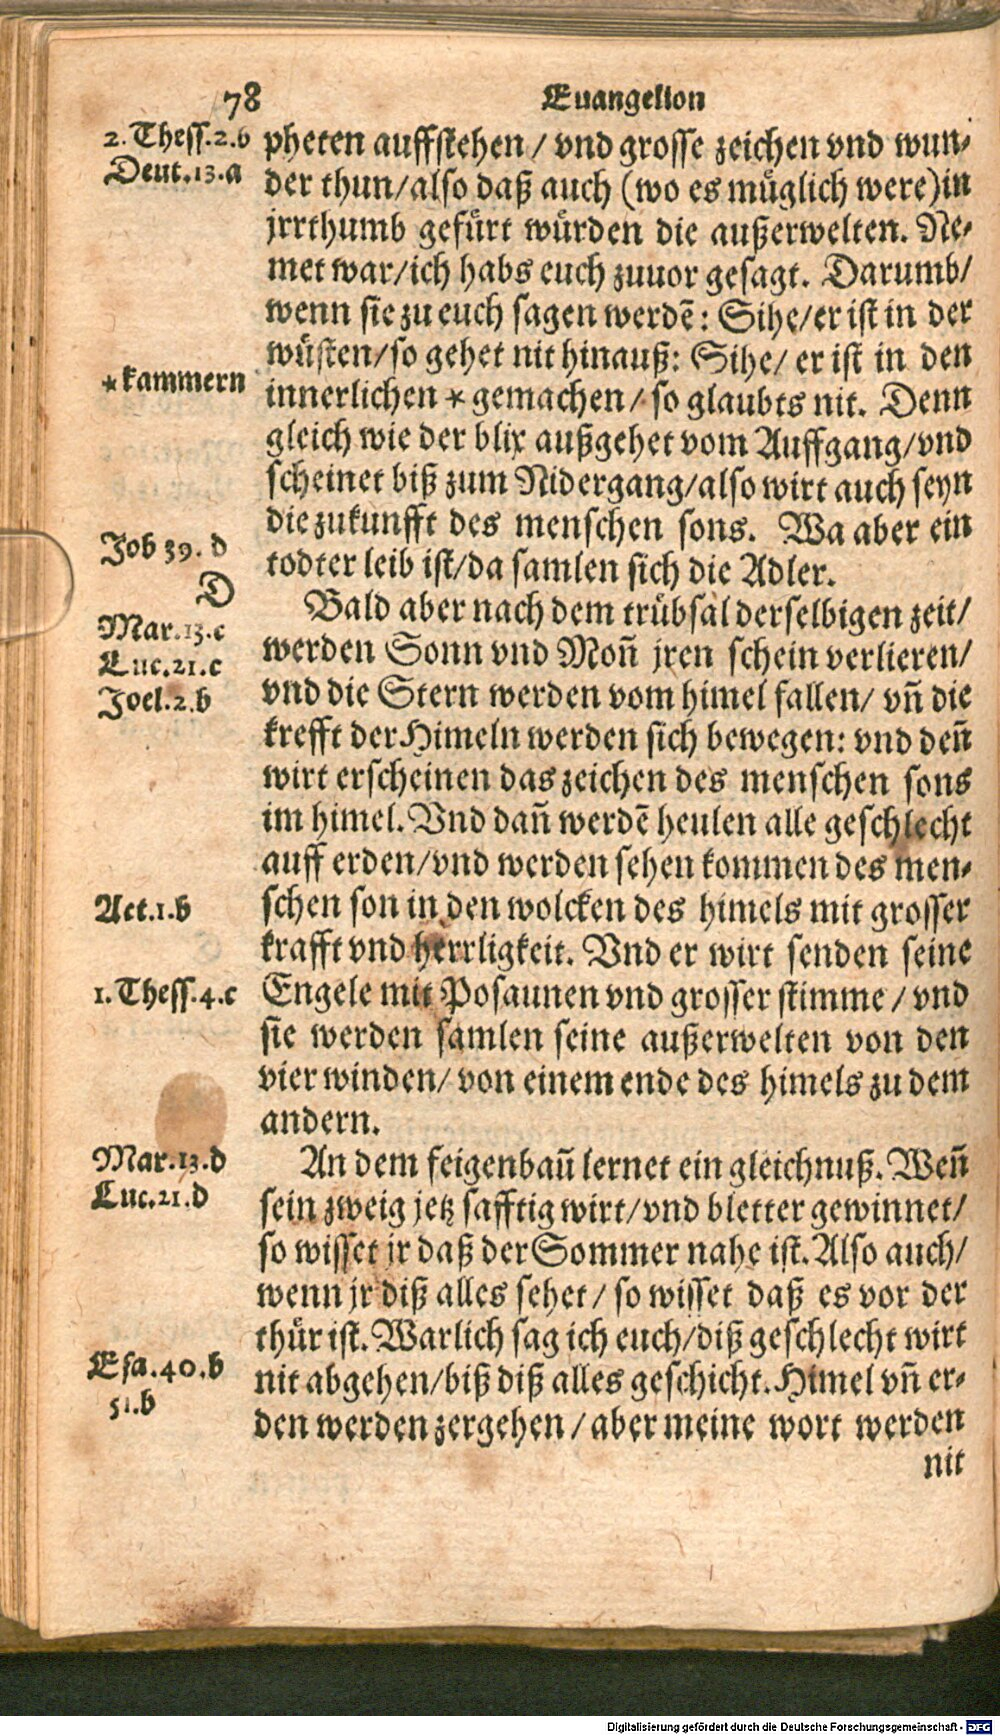 78 Euangelion
2. Thess.2.b
Deut.13.a
pheten auffstehen / vnd grosse zeichen vnd wun-
der thun/also daß auch (wo es müglich were)in
jrrthumb gefürt würden die außerwelten. Ne-
met war/ich habs euch zuuor gesagt. Darumb/
wenn sie zu euch sagen werdē: Sihe/er ist in der
wüsten/so gehet nit hinauß: Sihe/ er ist in den
*kammern
innerlichen * gemachen/ so glaubts nit. Denn
gleich wie der blix außgehet vom Auffgang/vnd
scheinet biß zum Nidergang/also wirt auch seyn
die zukunfft des menschen sons. Wa aber ein
Job 39. d
todter leib ist/da samlen sich die Adler.
D
Mar.13.c
Luc.21.c
Joel.2.b
Bald aber nach dem trübsal derselbigen zeit/
werden Sonn vnd Moñ jren schein verlieren/
vnd die Stern werden vom himel fallen/ vñ die
krefft der Himeln werden sich bewegen: vnd deñ
wirt erscheinen das zeichen des menschen sons
im himel. Vnd dañ werdē heulen alle geschlecht
auff erden/vnd werden sehen kommen des men-
Act.1.b
schen son in den wolcken des himels mit grosser
krafft vnd herrligkeit. Vnd er wirt senden seine
1. Thess.4.c
Engele mit Posaunen vnd grosser stimme / vnd
sie werden samlen seine außerwelten von den
vier winden/ von einem ende des himels zu dem
andern.
Mar.13.d
Luc.21.d
An dem feigenbaū lernet ein gleichnuß. Weñ
sein zweig jetz safftig wirt/vnd bletter gewinnet/
so wisset jr daß der Sommer nahe ist. Also auch/
wenn jr diß alles sehet / so wisset daß es vor der
thür ist. Warlich sag ich euch/diß geschlecht wirt
Esa.40.b
51.b
nit abgehen/biß diß alles geschicht. Himel vñ er-
den werden zergehen / aber meine wort werden
nit
Digitalisierung gefördert durch die Deutsche Forschungsgemeinschaft - DFG